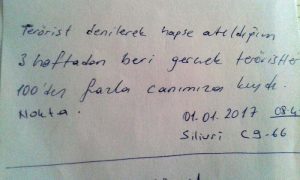 Terörist denilerek hapse atıldığım
3 haftadan beri gerçek teröristler
100'den fazla canımıza kıydı.
Nokta.
01.01.2017 08:4
Silivri C9-66